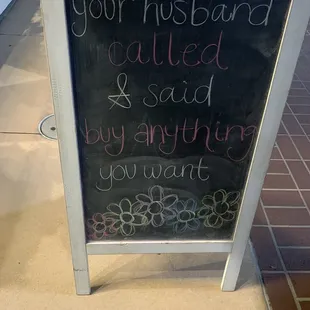 your husband
called
& said
buy anything
you want